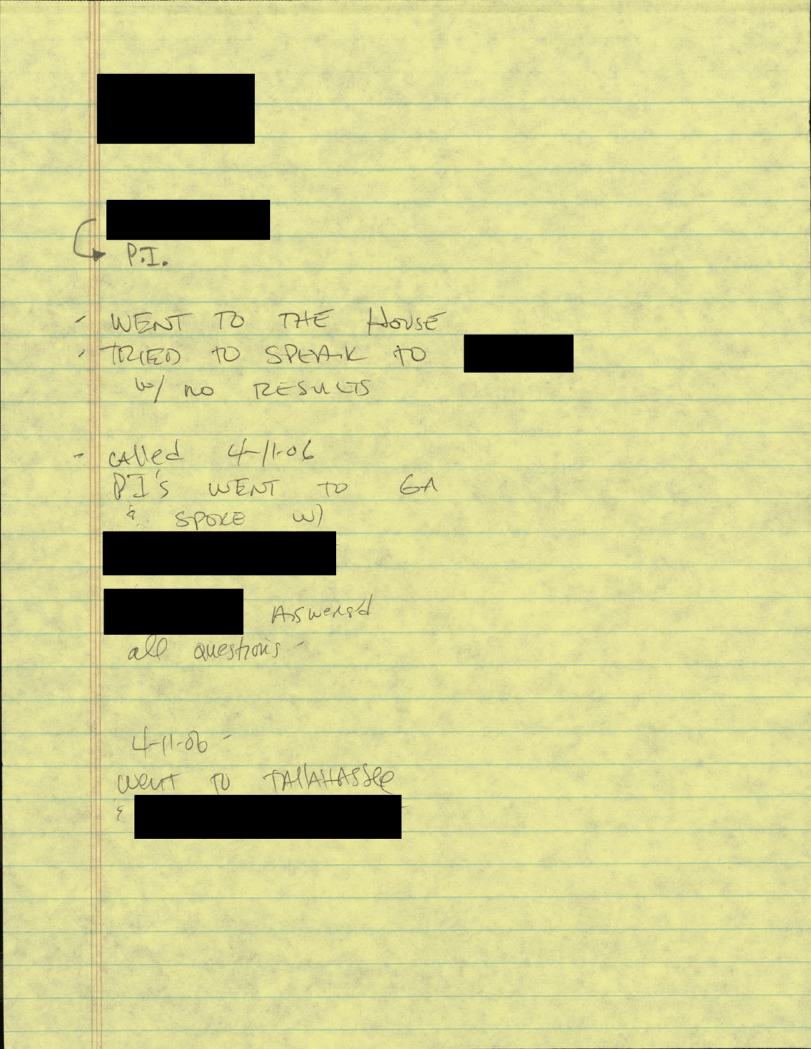 P.I.
- WENT TO THE HOUSE
- TRIED TO SPEAK TO
w/ no RESULTS
- called 4-11-06
PI's WENT TO GA
& SPOKE w/
Aswered
all questions -
4-11-06 -
went TO TAllAHASSee
&